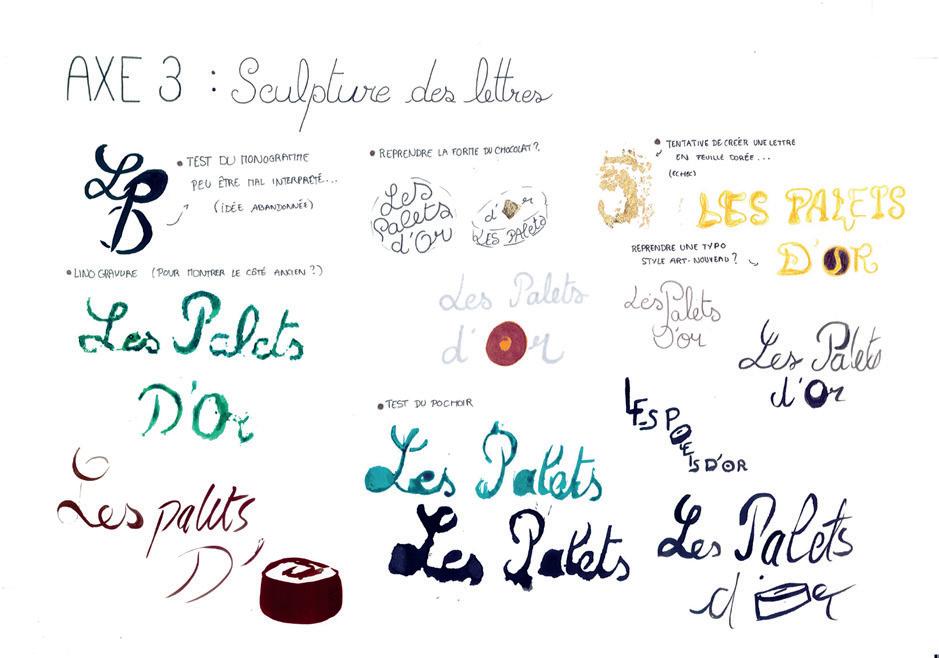 AXE 3 : Sculpture des lettres
LPD
• TEST DU MONOGRAMME
PEU ÊTRE MAL INTERPRÉTÉ...
(IDÉE ABANDONNÉE)
• REPRENDRE LA FORME DU CHOCOLAT ?
Les
Palets
d'Or
d'or
LES PALETS
• TENTATIVE DE CRÉER UNE LETTRE
EN FEUILLE DORÉE...
(ECHEC)
LES PALETS
D'OR
REPRENDRE UNE TYPO
STYLE ART-NOUVEAU ?
• LINOGRAVURE (POUR MONTRER LE CÔTÉ ANCIEN ?)
Les Palets
D'Or
Les Palets
d'Or
Les Palets
D'or
Les Palets
d'Or
• TEST DU POCHOIR
Les Palets
Les Palets
LES POLEIS D'OR
Les palets
D'
Les Palets
d'or